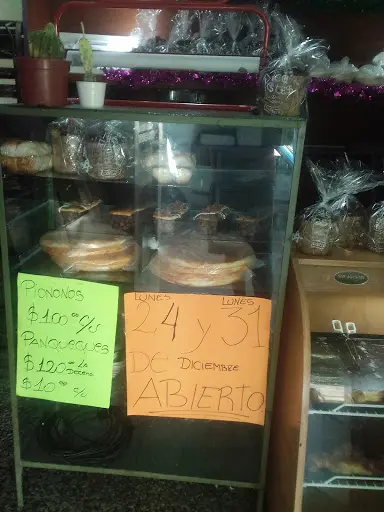 PIONONOS
$100.00 c/u
PANQUEQUES
$120.00 LA
DOCENA
$10.00 c/u
LUNES LUNES
24 y 31
DE DICIEMBRE
ABIERTO